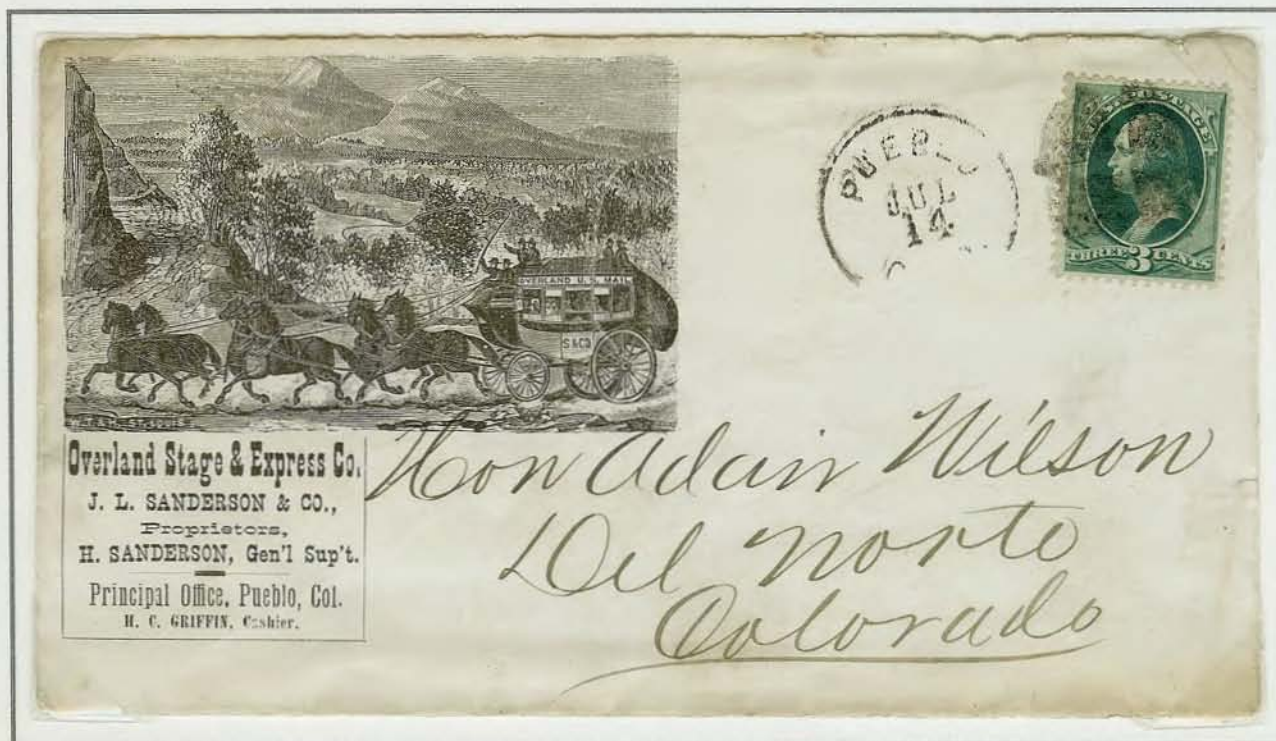 OVERLAND U.S. MAIL
S & CO
ST. LOUIS
Overland Stage & Express Co.
J. L. SANDERSON & CO.,
Proprietors,
H. SANDERSON, Gen'l Sup't.
Principal Office, Pueblo, Col.
H. C. GRIFFIN, Cashier.
PUEBLO
JUL
14
U.S. POSTAGE
THREE 3 CENTS
Hon Adair Wilson
Del Norte
Colorado